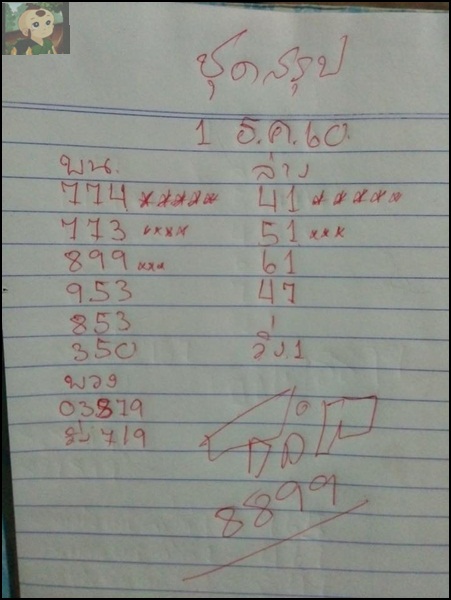 ชุดสรุป
1 ธ.ค.60
บน. ล่าง
774 xxxxx 41 xxxxx
773 xxxx 51 xxx
899 xxx 61
953 47
853
350 วิ่ง.1
พวง
03879
719
8899